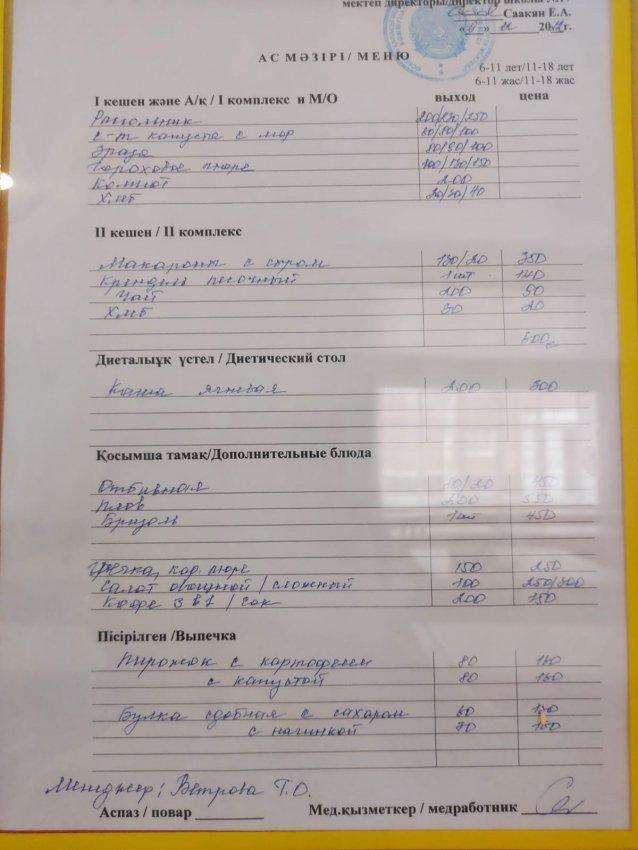 мектеп директоры/директор школы
Саакян Е.А.
АС МӘЗІРІ/ МЕНЮ
6-11 лет/11-18 лет
6-11 жас/11-18 жас
І кешен және А/қ / І комплекс и М/О выход цена
Рассольник 200/250/250
с-т капуста с мор 60/80/100
Эраза 80/90/100
Гороховое пюре 100/130/150
Компот 200
Хлеб 20/30/40
ІІ кешен / ІІ комплекс
Макароны с сыром 130/20 350
Крендель песочный 1 шт 140
Чай 200 50
Хлеб 30 20
Диеталыұқ үстел / Диетический стол
Каша ячневая 200 300
Қосымша тамак/Дополнительные блюда
Отбивная 450
Плов 200 550
Бризоль 1 шт 450
Гречка, кар. пюре 150 250
Салат овощной / сложный 100 250/300
Кофе 3 в 1 / сок 200 150
Пісірілген /Выпечка
Пирожок с картофелем 80 160
с капустой 80 160
Булка сдобная с сахаром 60 150
с начинкой 70 150
Менеджер: Ветрова Т.О.
Аспаз / повар Мед.қызметкер / медработник